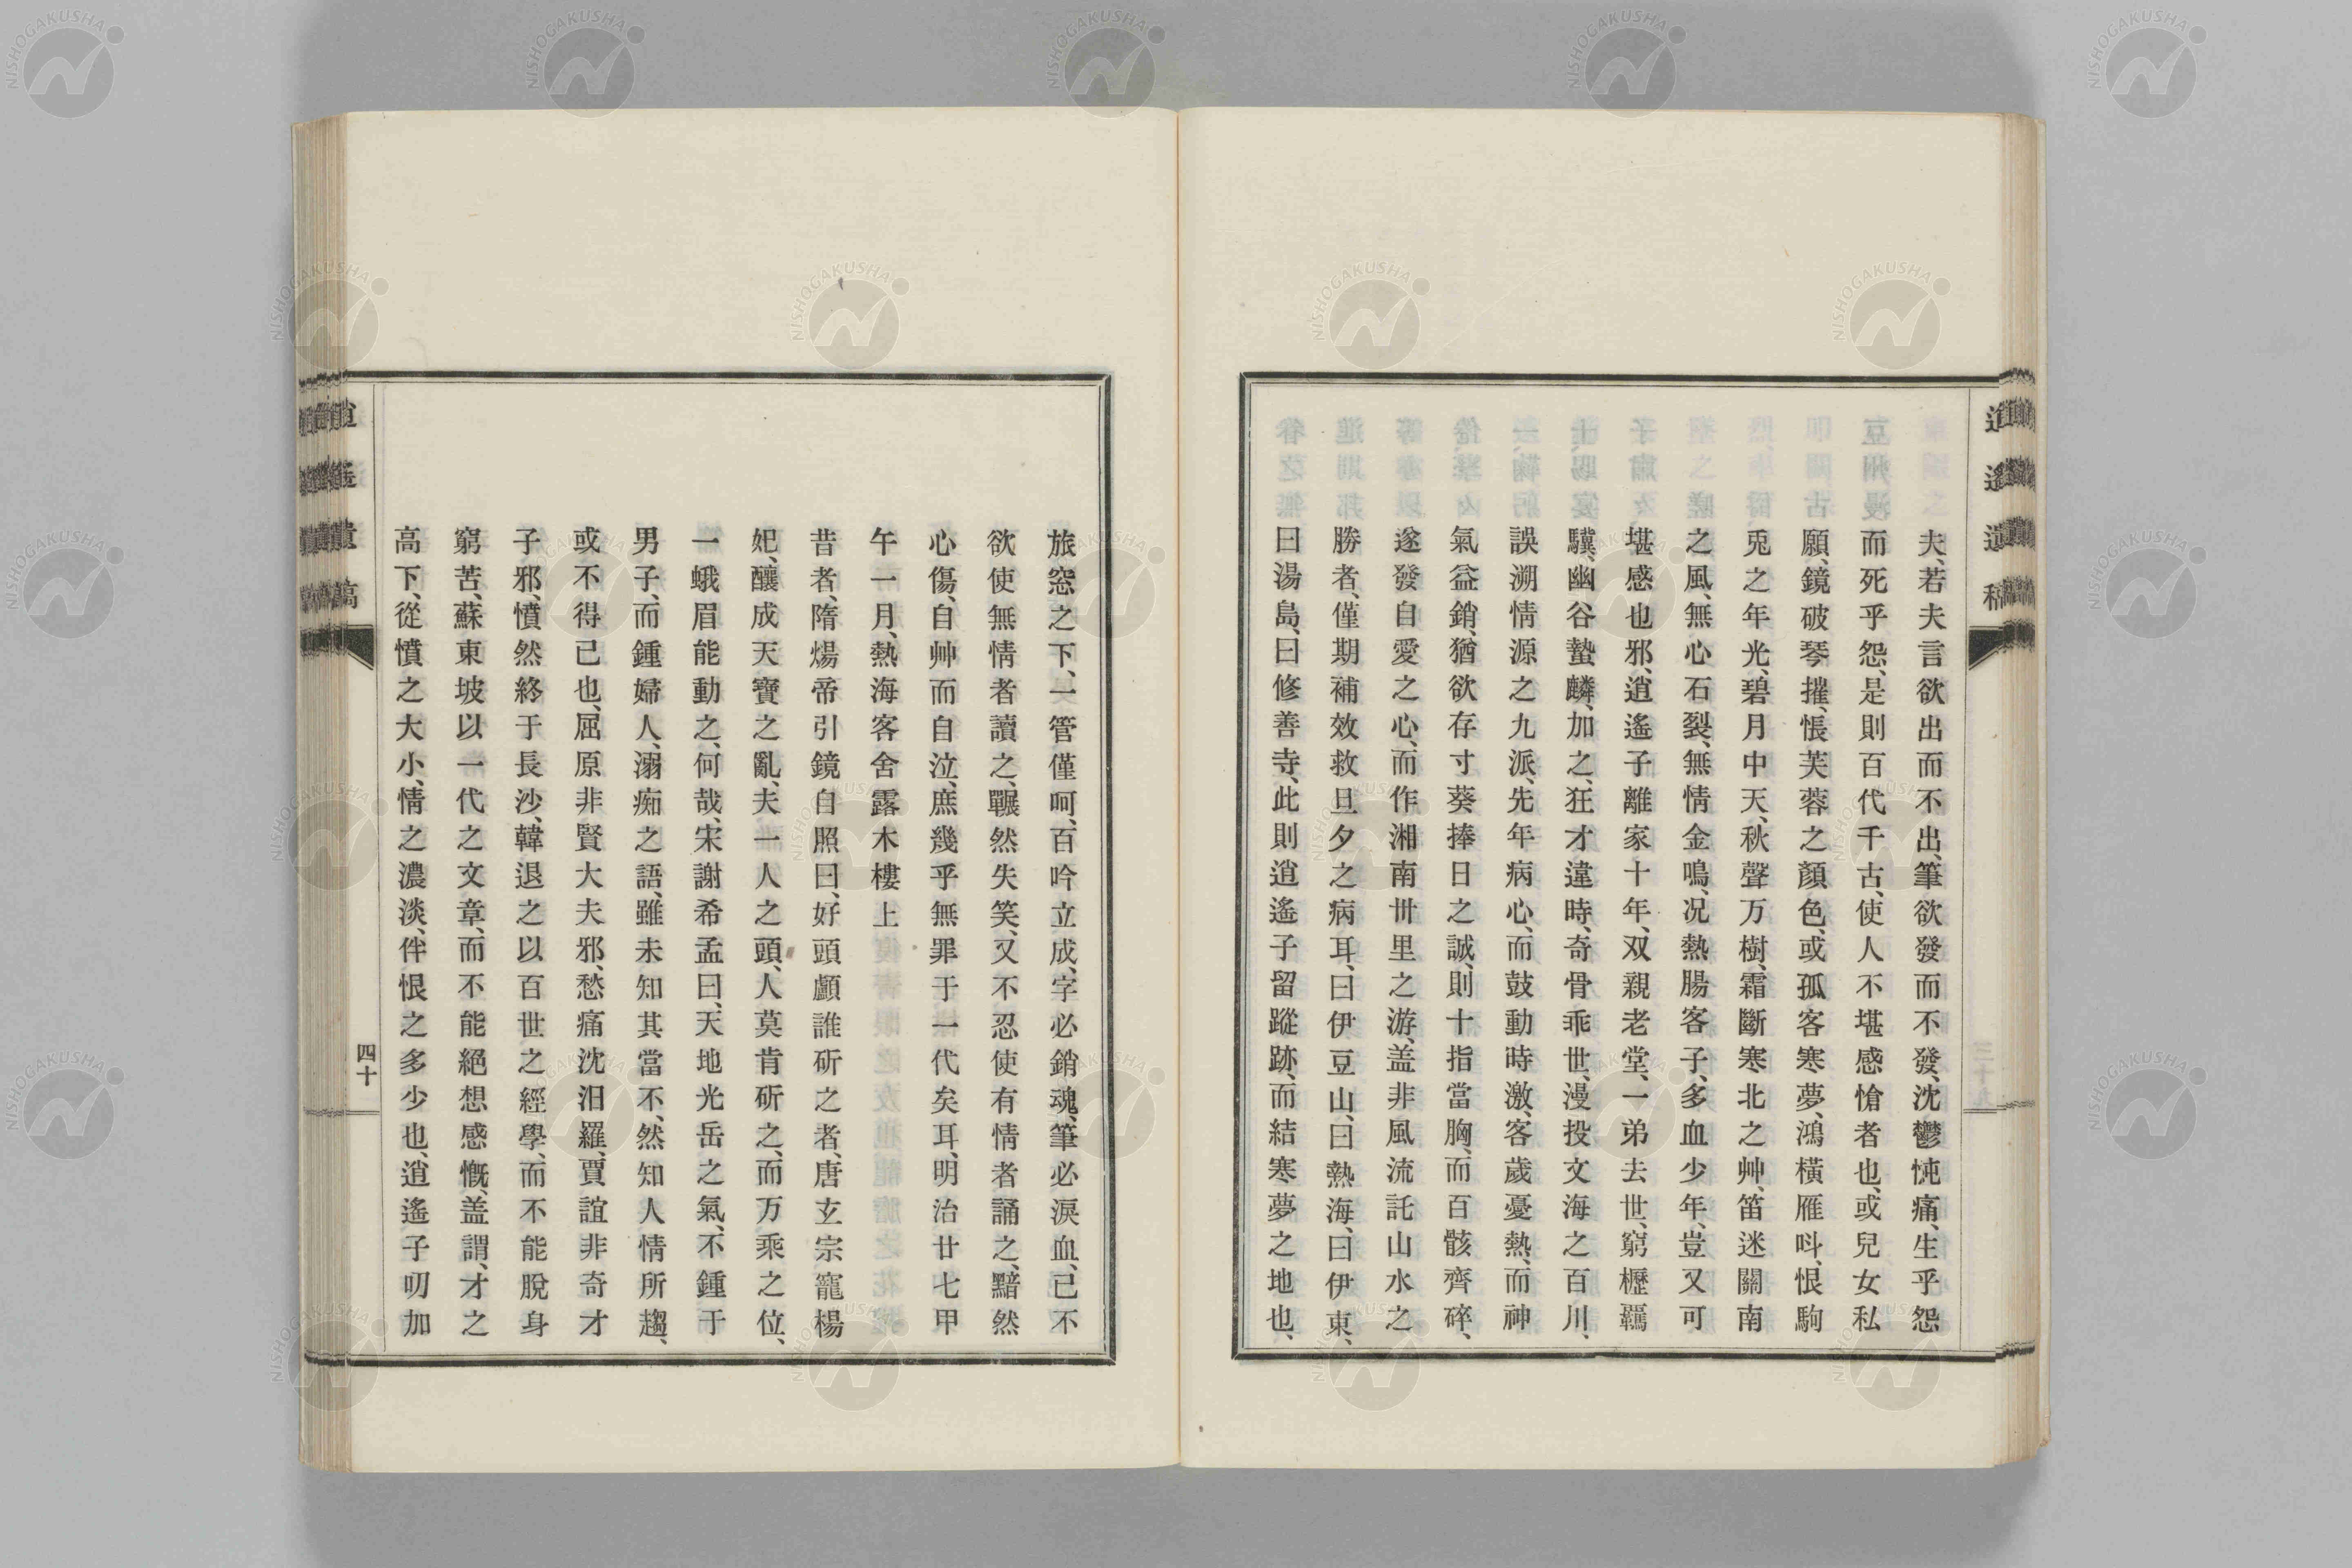 逍遙遺稿
夫、若夫言欲出而不出、筆欲發而不發、沈鬱忳痛、生乎怨
而死乎怨、是則百代千古、使人不堪感愴者也、或兒女私
願、鏡破琴摧、悵芙蓉之顏色、或孤客寒夢、鴻橫雁呌、恨駒
兎之年光、碧月中天、秋聲万樹、霜斷寒北之艸、笛迷關南
之風、無心石裂、無情金鳴、况熱腸客子、多血少年、豈又可
堪感也邪、逍遙子離家十年、双親老堂、一弟去世、窮櫪羈
驥、幽谷蟄麟、加之、狂才違時、奇骨乖世、漫投文海之百川、
誤溯情源之九派、先年病心、而鼓動時激、客歲憂熱、而神
氣益銷、猶欲存寸葵捧日之誠、則十指當胸、而百骸齊碎、
遂發自愛之心、而作湘南丗里之游、盖非風流託山水之
勝者、僅期補效救旦夕之病耳、曰伊豆山、曰熱海、曰伊東、
曰湯島、曰修善寺、此則逍遙子留蹤跡、而結寒夢之地也、
旅窓之下、一管僅呵、百吟立成、字必銷魂、筆必淚血、已不
欲使無情者讀之、囅然失笑、又不忍使有情者誦之、黯然
心傷、自艸而自泣、庶幾乎無罪于一代矣耳、明治廿七甲
午一月、熱海客舍露木樓上
昔者、隋煬帝引鏡自照曰、好頭顱誰斫之者、唐玄宗寵楊
妃、釀成天寶之亂、夫一人之頭、人莫肯斫之、而万乘之位、
一蛾眉能動之、何哉、宋謝希孟曰、天地光岳之氣、不鍾于
男子、而鍾婦人、溺痴之語、雖未知其當不、然知人情所趨、
或不得已也、屈原非賢大夫邪、愁痛沈汨羅、賈誼非奇才
子邪、憤然終于長沙、韓退之以百世之經學、而不能脫身
窮苦、蘇東坡以一代之文章、而不能絕想感慨、盖謂、才之
高下、從憤之大小、情之濃淡、伴恨之多少也、逍遙子叨加
逍遙遺稿
四十